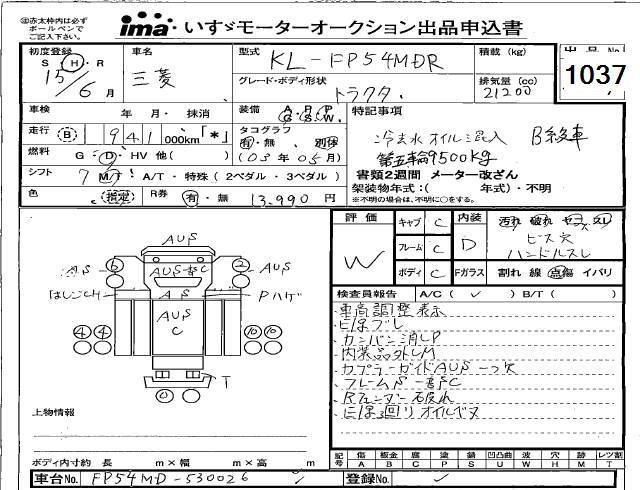 ㊟赤太枠内は必ず
ボールペンで
ご記入下さい。
ima いすゞモーターオークション出品申込書
初度登録 車名 型式 KL-FP54MDR 積載 (kg) 出品No
S H・R 三菱 グレード・ボディ形状 排気量 (cc) 1037
15/6月 トラクタ 21200
車検 年 月・抹消 装備 特記事項
走行 (B) 941 000km「*」 タコグラフ 冷去水オイル混入 B級車
有・無 別体
燃料 G・D・HV 他( ) (03年05月) 第五輪9500kg
シフト 7 M/T・A/T・特殊(2ペダル・3ペダル) 書類2週間 メーター改ざん
架装物年式:( 年式)・不明
色 (指定) R券 有・無 13.990 円 *不明の場合は、不明に○をする。
評価 キャブ C 内装 汚れ 破れ ヤニ スレ
W フレーム C D ビス穴
ハンドルスレ
ボディ C Fガラス 割れ 線 点傷 イバリ
検査員報告 A/C( ✓ ) B/T( )
AUS
6 AUS-部C 2 AUS
はしごCH AS Pハゲ
AUS
C
4 4 10 10
T
0
・車高調整表示
・ヒほブレ
・カンバン消しP
・内装品外しM
・カプラーガイドAUS一つ欠
・フレームS一部FC
・Rフェンダー破れ
・ヒほ回りオイルモレ
上物情報
記号 傷 板金 腐 塗 錆 凹凸曲 波 穴 跡 レツ割
A B C P S U W H M T
ボディ内寸約 長 m×幅 m×高 m
車台No. FP54MD-530026 登録No.